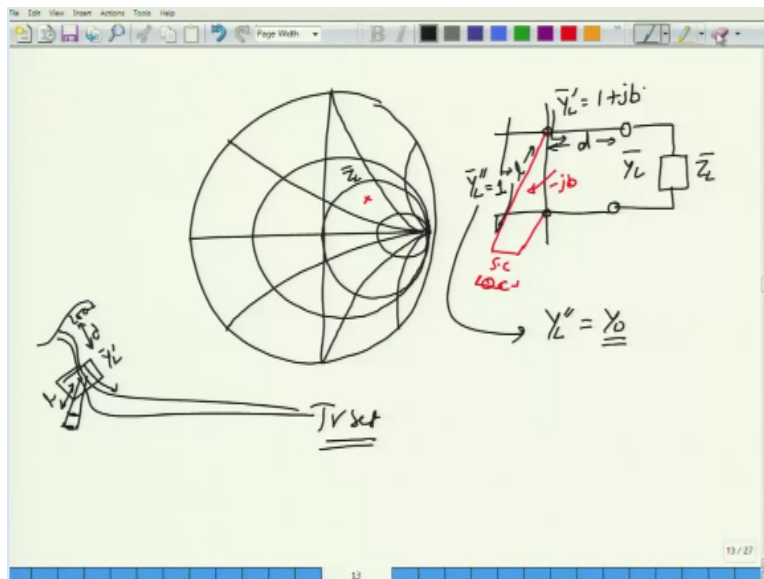 File Edit View Insert Actions Tools Help
Page Width
B I
Z̄L
Ȳ'L = 1+jb
d
ȲL
Z̄L
Ȳ"L = 1
l
-jb
S.C
Y"L = Y0
d
Ȳ'L
TV set
13 / 27
13